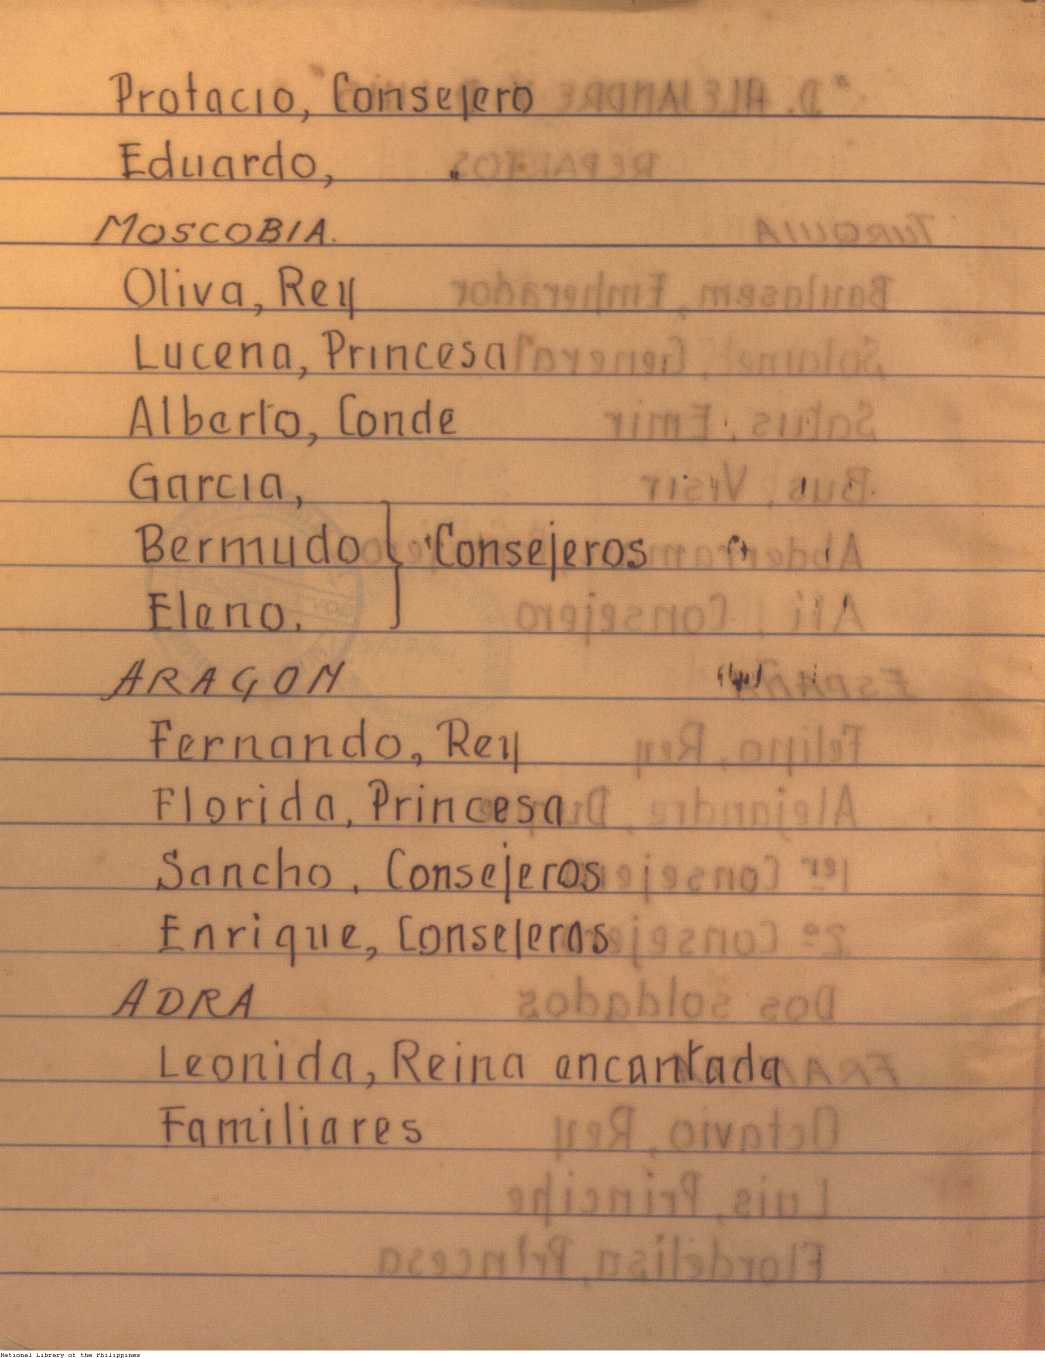 Protacio, Consejero
Eduardo, "
MOSCOBIA.
Oliva, Rey
Lucena, Princesa
Alberto, Conde
Garcia,
Bermudo } Consejeros
Eleno.
ARAGON
Fernando, Rey
Florida, Princesa
Sancho, Consejeros
Enrique, Consejeros
ADRA
Leonida, Reina encantada
Familiares
National Library of the Philippines